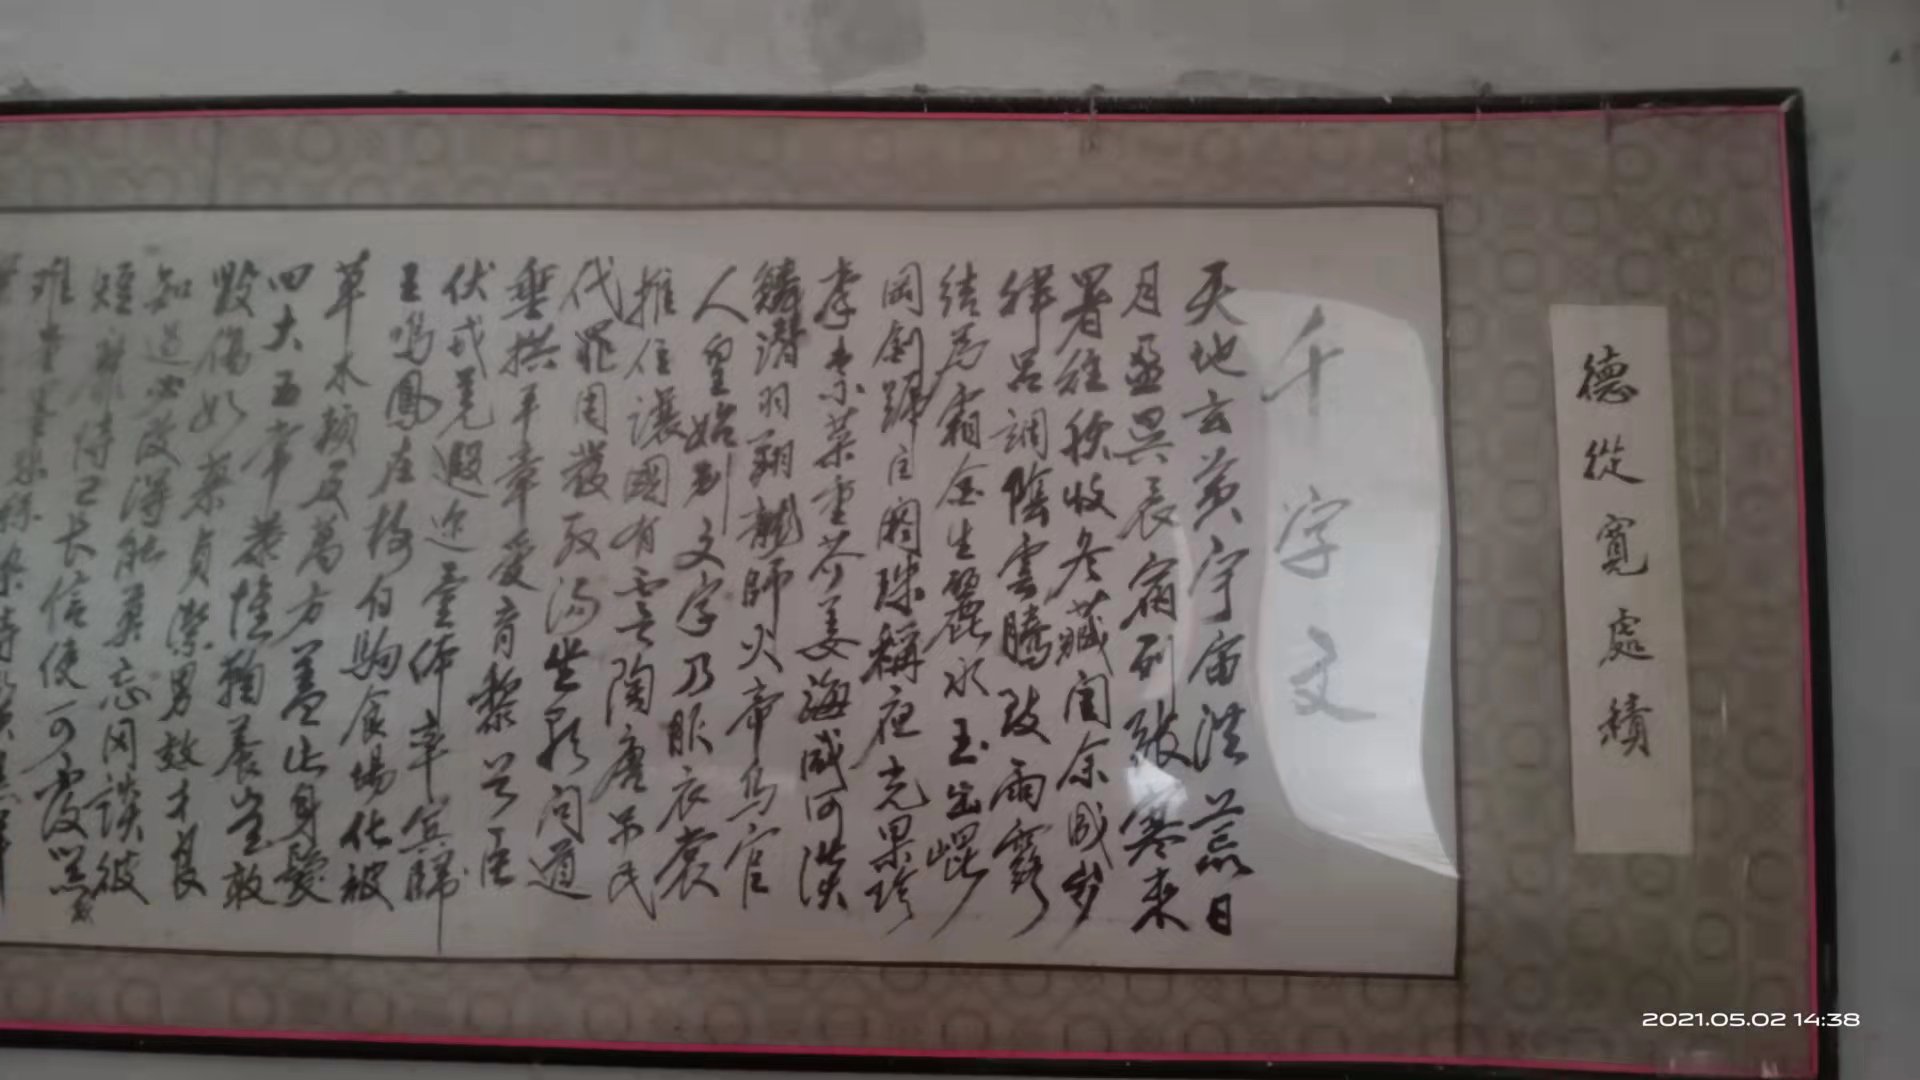 德從寬處積
千字文
天地玄黄宇宙洪荒日
月盈昃辰宿列張寒來
暑往秋收冬藏閏余成岁
律吕調陰雲騰致雨露
結為霜金生麗水玉出崑
岡劍歸巨闕珠稱夜光果珍
李柰菜重芥姜海咸河淡
鱗潛羽翔龍師火帝鸟官
人皇始制文字乃服衣裳
推位讓國有虞陶唐吊民
伐罪周發殷湯坐朝問道
垂拱平章愛育黎首臣
伏戎羌遐迩壹体率賓歸
王鳴鳳在樹白駒食場化被
草木賴及萬方盖此身髮
四大五常恭惟鞠養豈敢
毀傷女慕貞潔男效才良
知過必改得能莫忘罔談彼
短靡恃己长信使可覆器
難量墨悲絲染詩
2021.05.02 14:38